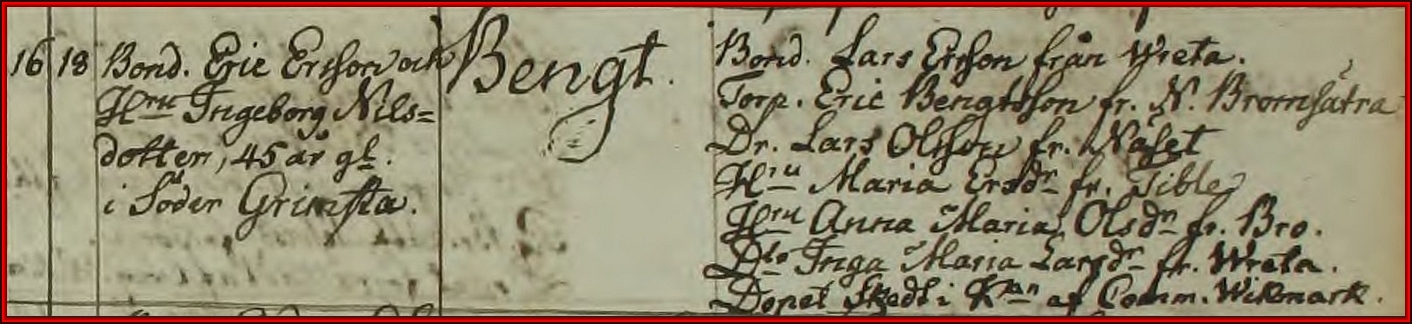 16 18 Bond. Eric Ersson och
Hru Ingeborg Nils=
dotter, 45 år gl.
i Söder Grimsta.
Bengt.
Bond. Lars Ersson från Wreta.
Torp. Eric Bengtsson fr. N. Bromsätra
Dr. Lars Olsson fr. Näset
Hru Maria Ersdr fr. Tible
Hru Anna Maria Olsdr fr. Bro.
Dtr Inga Maria Larsdr fr. Wreta.
Dopet Skedt i Kkan af Comm. Wikmark.